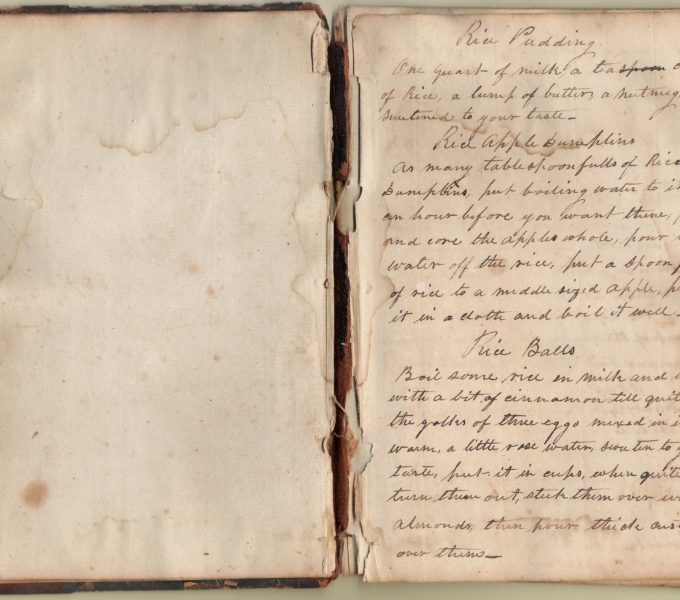 Rice Pudding.
One quart of milk a tea spoon
of Rice, a lump of butter, a nutmeg
sweetened to your taste –
Rice Apple Dumplins
As many tablespoonfulls of Rice
Dumplins, put boiling water to i
an hour before you want them, p
and core the apples whole, pour
water off the rice, put a spoon
of rice to a middle sized apple, p
it in a cloth and boil it well –
Rice Balls
Boil some rice in milk and
with a bit of cinnamon till quit
the yolks of three eggs mixed in i
warm, a little rose water, sweeten to y
taste, put it in cups, when quite
turn them out, stick them over w
Almonds, then pour thick cus
over them –